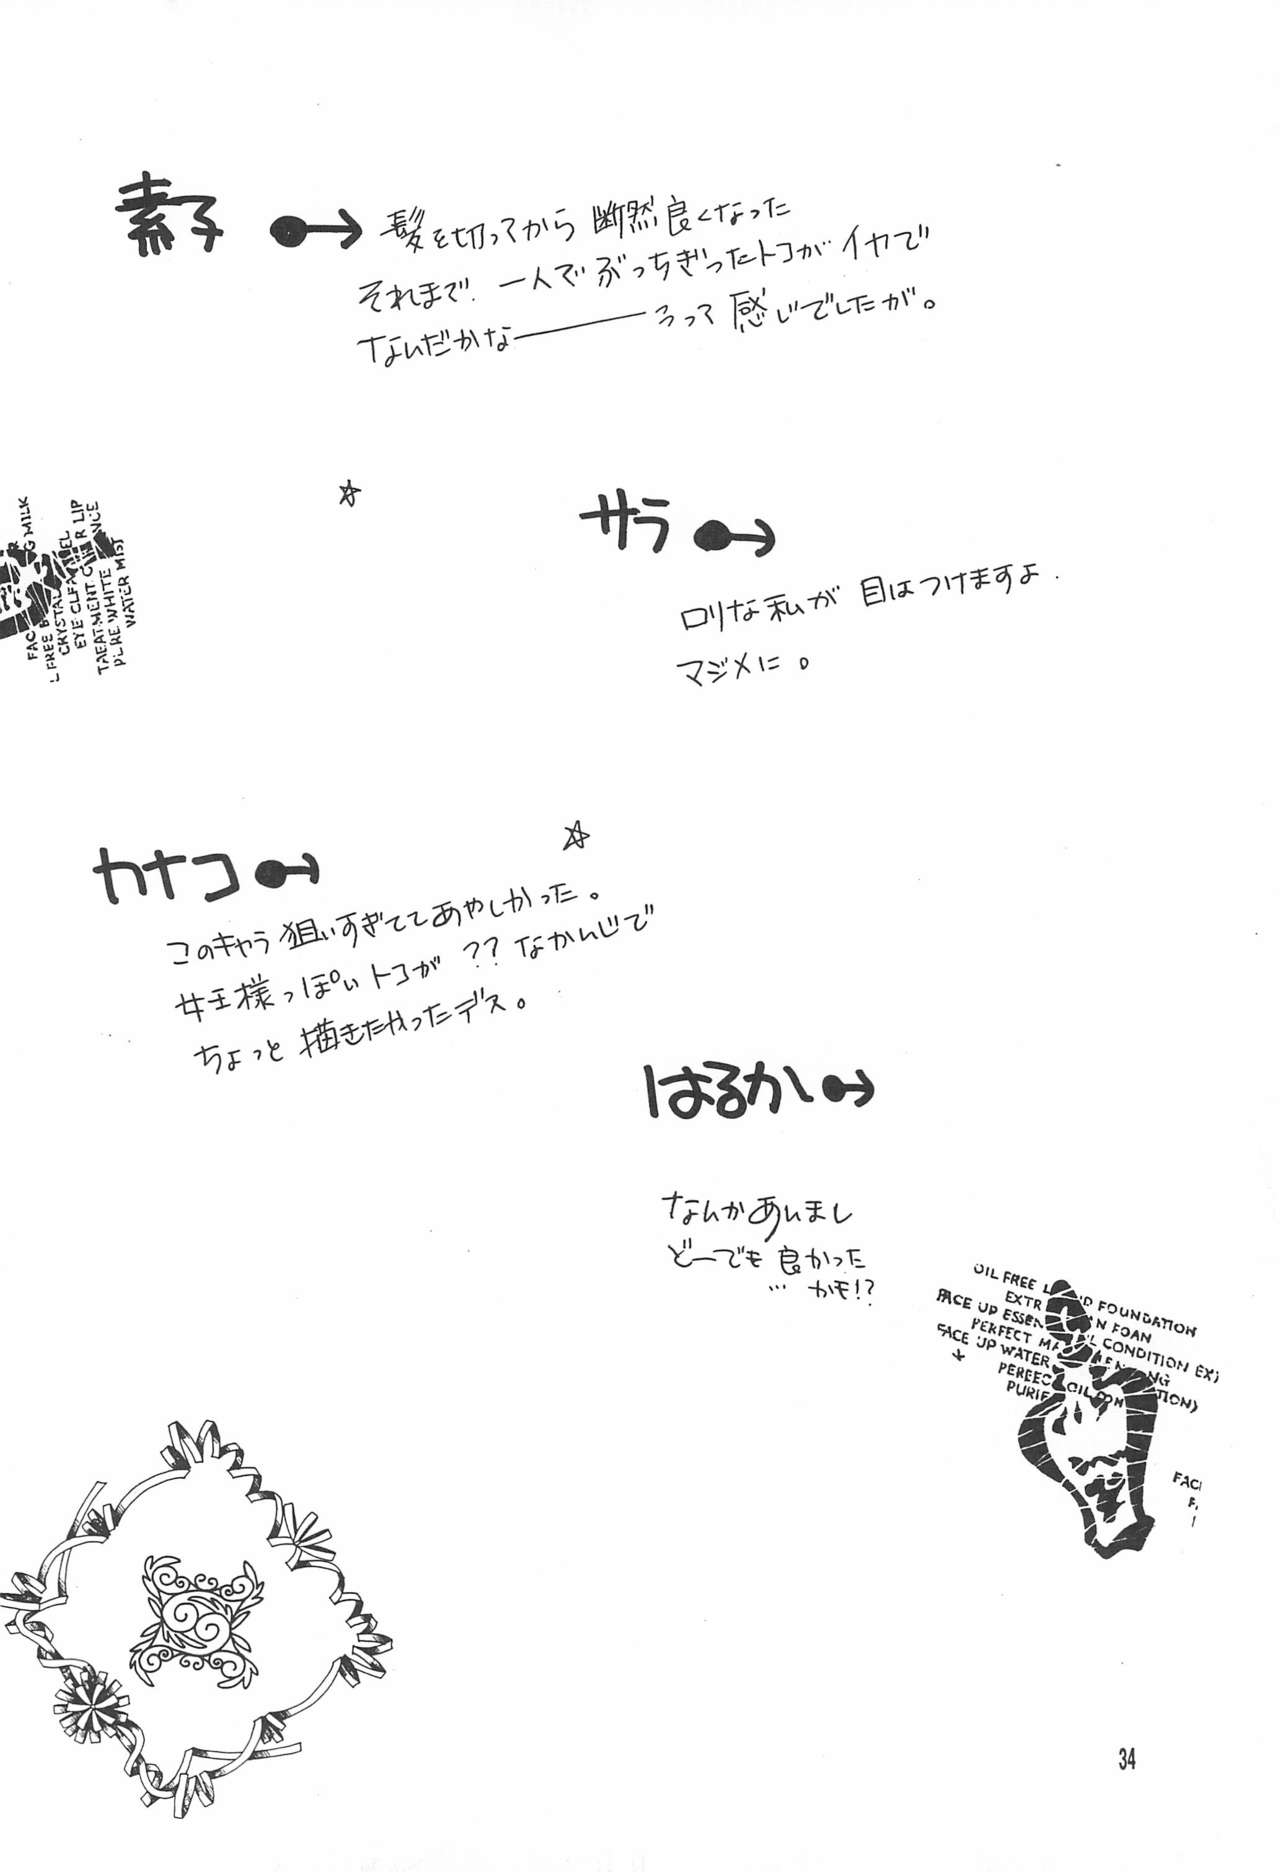 素子
髪を切ってから 断然良くなった
それまで、一人でぶっちぎったトコがイヤで
なんだかな――――ろって 感じでしたが。
サラ
ロリな私が 目はつけますよ.
マジメに。
FAC
G MILK
L FREE B
CRYSTAL
EYE CLEA
LIP
TAEATMENT C
NCE
PURE WHITE
WATER MIST
カナコ
このキャラ 狙いすぎててあやしかった。
女王様っぽいトコが ?? なかんじで
ちょっと 描きたかったデス。
はるか
なんかあいまし
どーでも 良かった
… かモ!?
OIL FREE L D FOUNDATION
EXTR N FOAN
FACE UP ESSEN L CONDITION EX
PERFECT MA NG
FACE UP WATER TION)
PEREEC OIL CON
PURIF
FAC
F
34